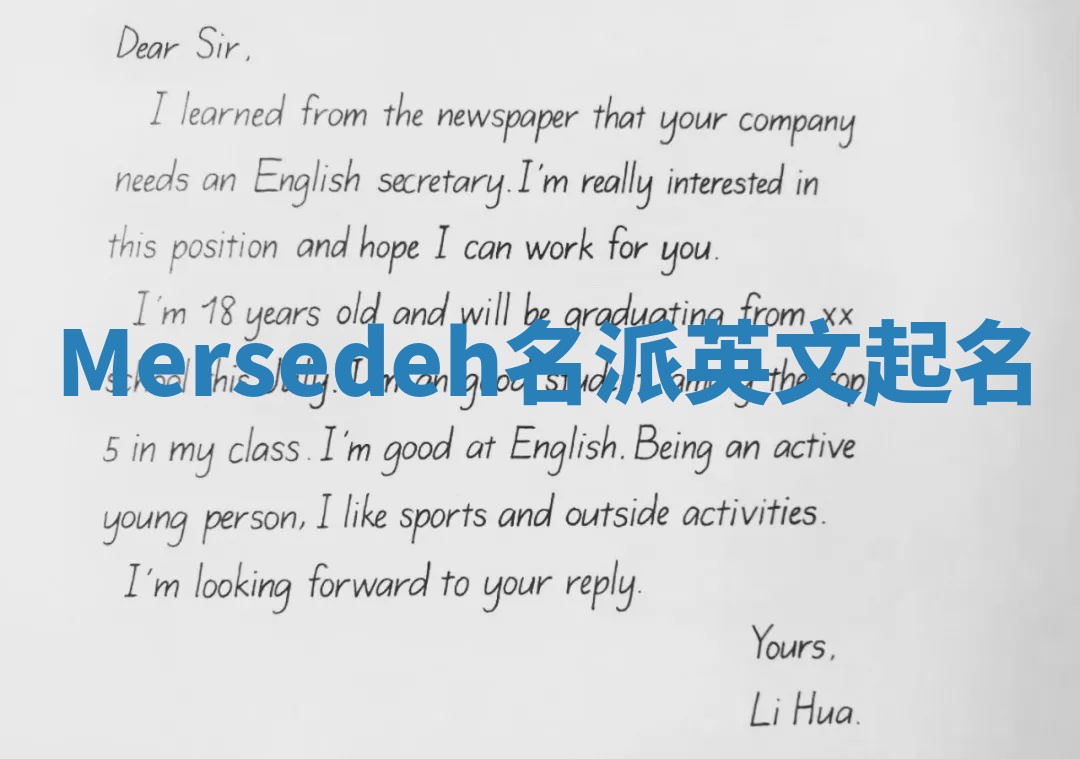 Dear Sir,
I learned from the newspaper that your company
needs an English secretary. I'm really interested in
this position and hope I can work for you.
I'm 18 years old and will be graduating from xx
Mersedeh名派英文起名
school this July. I'm an good student among the top
5 in my class. I'm good at English. Being an active
young person, I like sports and outside activities.
I'm looking forward to your reply.
Yours,
Li Hua.